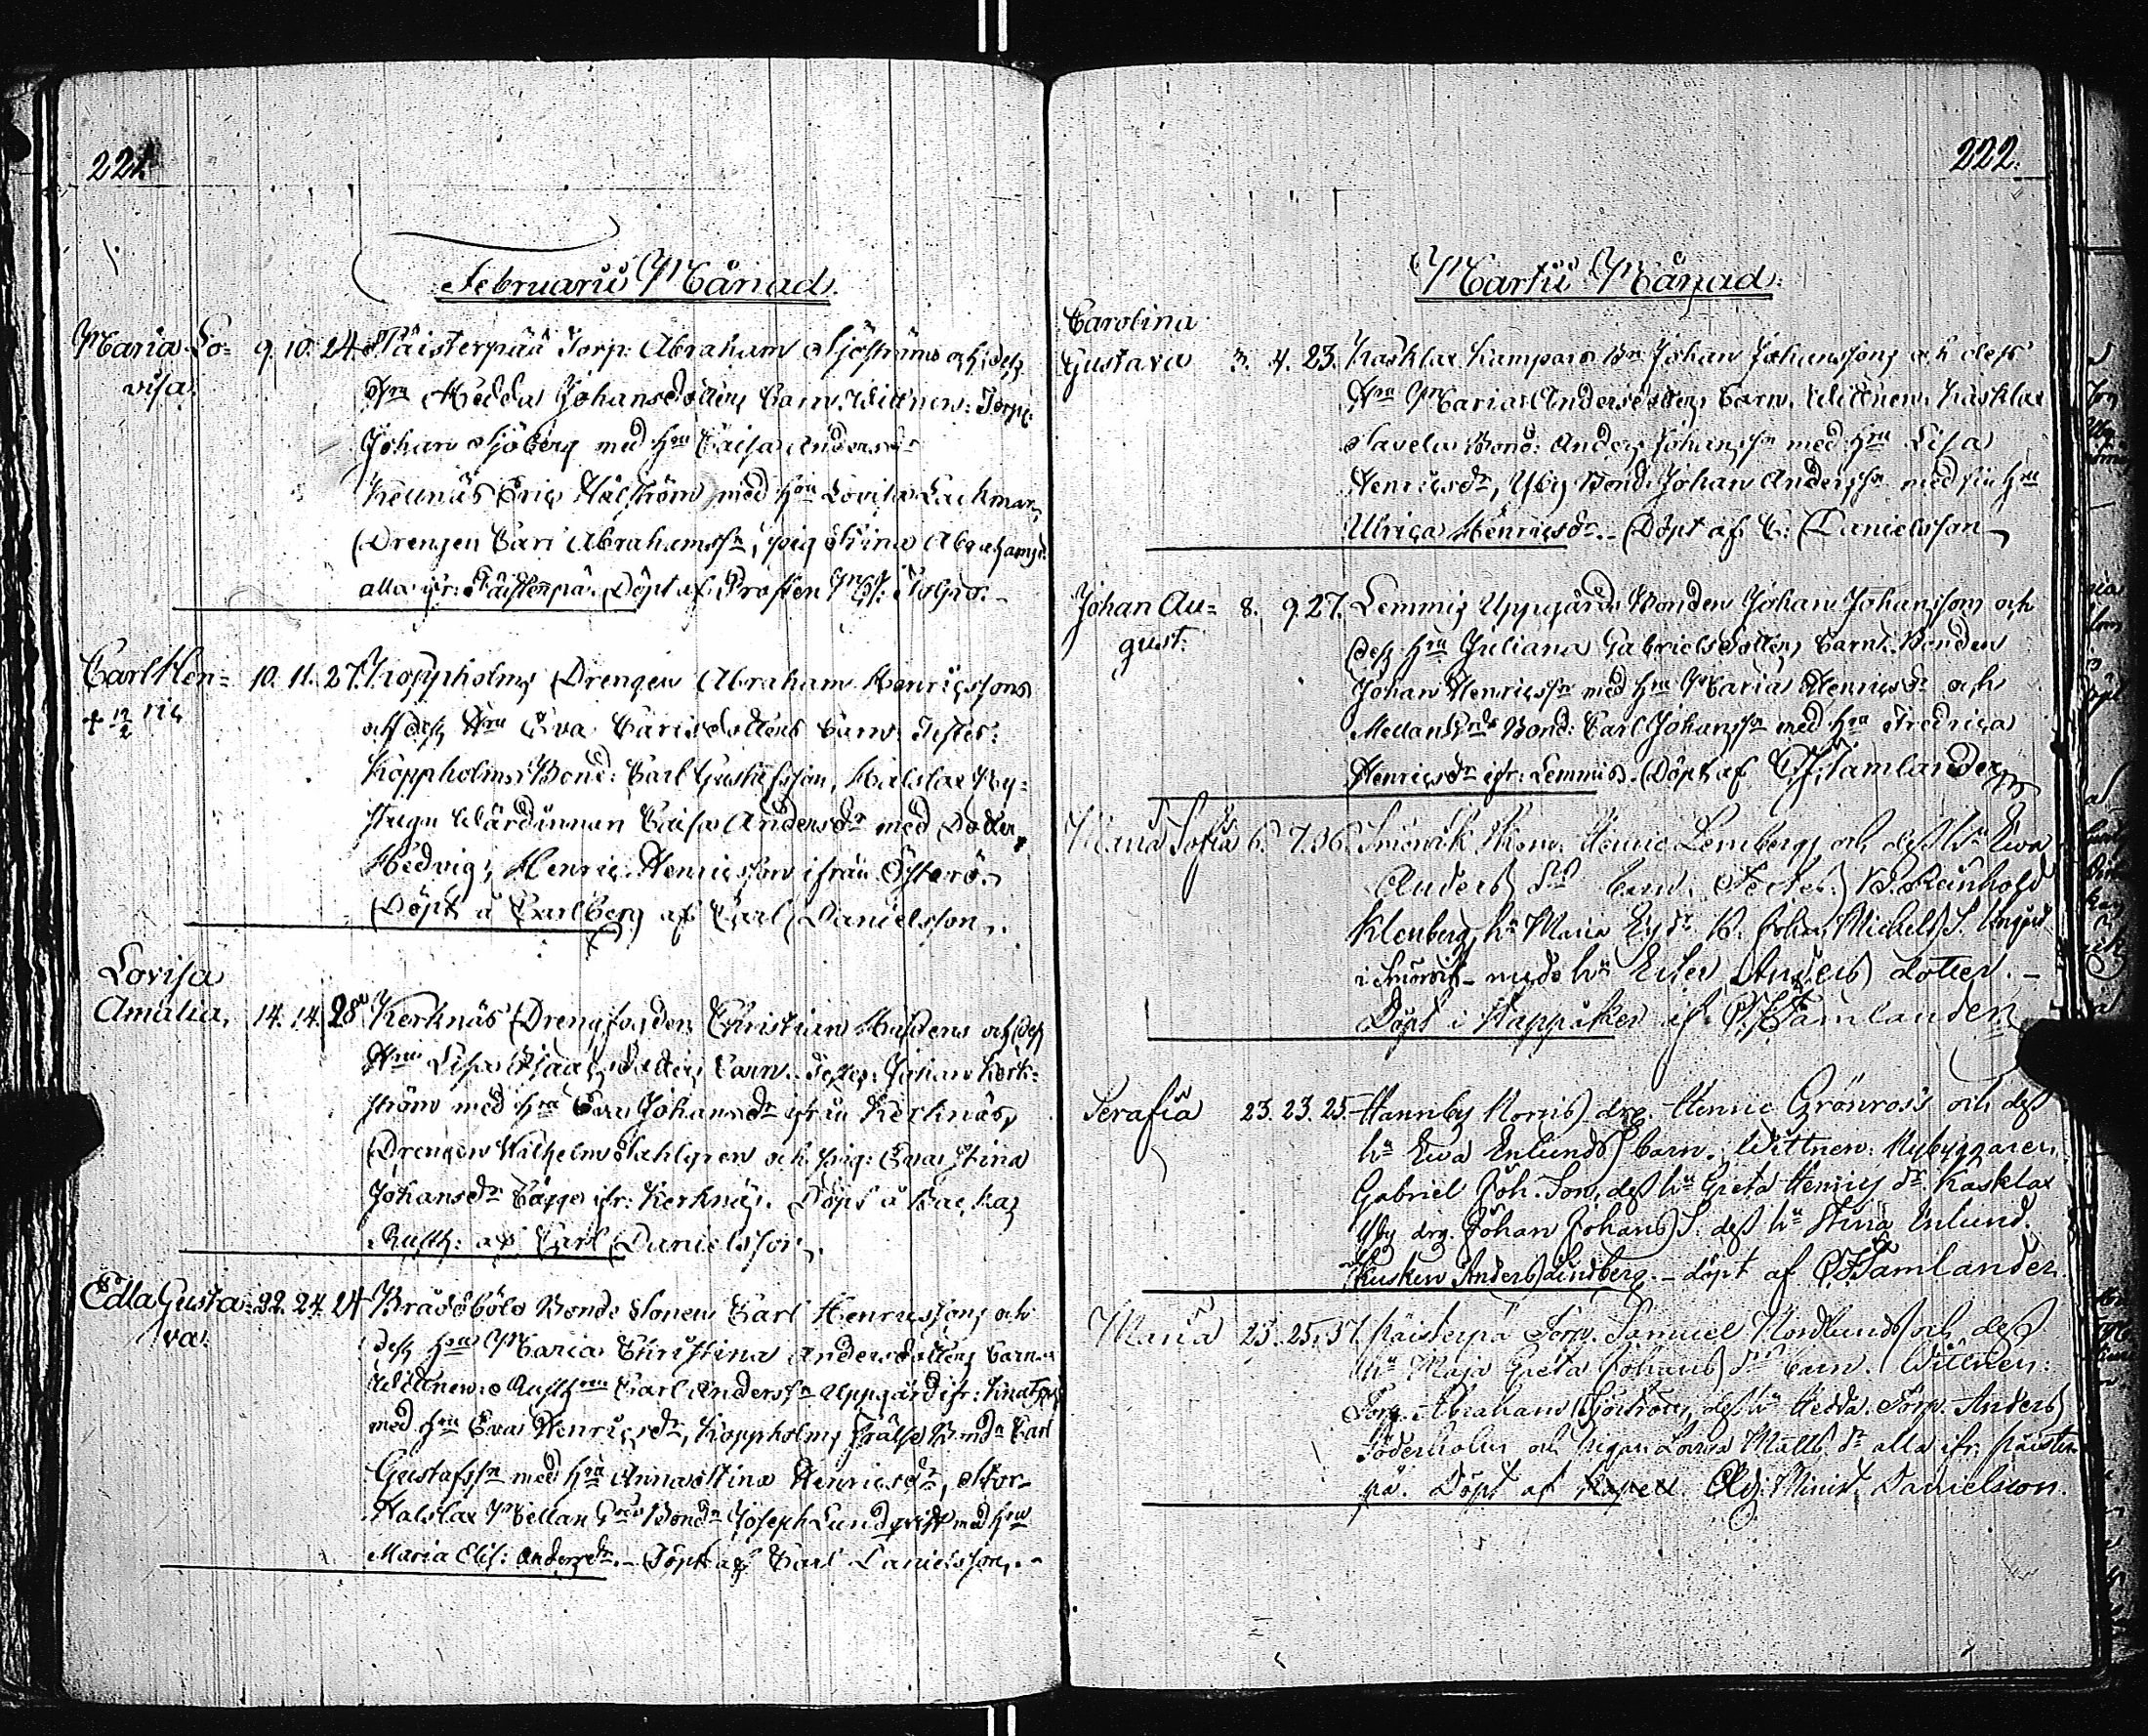 221.
Februarii Månad.
Maria Lo= 9. 10. 24. Päisterpää Torp: Abraham Sjöströms och dess
visa. Hru Hedda Johansdotters Barn. Wittnen: Torp:
Johan Sjöberg med Hru Caisa Andersdr
Kellnäs Eric Hälström med Hru Lovisa Lackman,
Drengen Carl Abrahamssn, pig Stina Abrahamsd.
alla ifr: Päisterpä. Döpt af Prosten
Carl Hen= 10. 11. 27. Koppholms Drengen Abraham Henricssons
+ 12/2 ric och dess Hru Eva Carlsdotters Barn. Testes:
Koppholms Bond: Carl Gustafsson, Halslax Ny=
stugu Wärdinnan Caisa Andersdr med Dotter
Hedvig, Henric Henricsson ifrån Österö.
Döpt å Carlberg af Carl Danielsson.
Lovisa
Amalia, 14. 14. 28 Kerknäs Drengfogden Christian och dess
Hru Lisa Isaacsdotters Barn. Testes: Johan Kerk=
ström med Hru Eva Johansdr ifrån Kerknäs,
Drengen Wilhelm Stahlgren och Pig: Eva Stina
Johansdr Bägge ifr: Kerknäs. Döpt å Backas
Rusth: af Carl Danielsson.
Edla Gusta= 22. 24. 24 Brödsbölo Bonde Sonen Carl Henricssons och
va. dess Hru Maria Christina Andersdotters Barn.
Wittnen: Rusth Carl Anderssn Uppgård ifr:
med Hru Eva Henricsdr, Koppholms Frälse Bondn Carl
Gustafssn med Hru Anna Stina Henricsdr, Stor-
Halslax Mellan Grds Bondn Joseph Lundqvist med Hru
Maria Elis: Andersdr. - Döpt af Carl Danielsson. -
222.
Martii Månad.
Carolina
Gustava 3. 4. 23. Kasklax Kampars Bn Johan Johanssons och dess
Hru Maria Andersdotters Barn. Wittnen: Kasklax
Savela Bond: Anders Johanssn med Hru Lisa
Henricsdr, Yby Bond: Johan Anderssn med sin Hru
Ulrica Henricsdr. - Döpt af C: Danielsson
Johan Au= 8. 9. 27. Lemmis Uppgårds Bonden Johan Johanssons och
gust. dess Hru Juliana Gabrielsdotters Barn. Bonden
Johan Henricssn med Hru Maria Henricsdr och
Mellangrds Bond: Carl Johanssn med Hru Fredrica
Henricsdr ifr: Lemmis. Döpt af C.F. Tamlander
Maria Sofia 6. 7. 36. Smörvik Henric Lembergs och dess hu Ewa
Anders dr barn. Testes: B. Reinhold
Klenberg, hu Maria B. Johan Michels S.
i Smörvik med hu Ester Anders dotter. -
Döpt i Kappåker af C.F. Tamlander
Serafia 23. 23. 25. Hannby Norris drg. Henric Grönroos och dess
hu Ewa Enlunds barn. Wittnen: Nybyggaren
Gabriel Joh. Son, dess hu Greta Henrics dr Kasklax
Yby drg. Johan Johans S. dess hu Stina Enlund.
Kusken Anders Lindberg. - döpt af C.F. Tamlander.
Maria 23. 25. 37. Päisterpä Torp. Samuel Nordlunds och dess
hu Maja Greta Johans dr barn. Wittnen:
Torp. Abraham Sjöström, dess hu Hedda. Torp. Anders
Söderholm och Pigan Lovisa Matts dr alla ifr. Päister
pä. Döpt af Kapell. Adj. Minist. Danielsson.